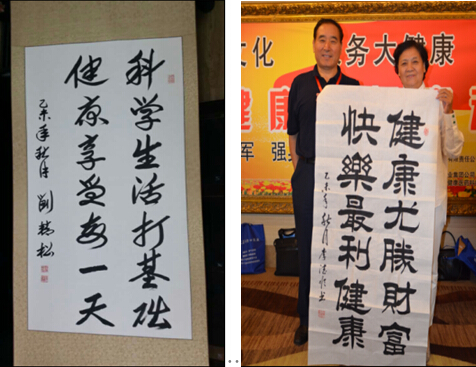 科学生活打基础
健康享受每一天
乙未年秋月
健康尤勝財富
快樂最利健康
乙未年秋月
文化
务大健康
健康
军
强